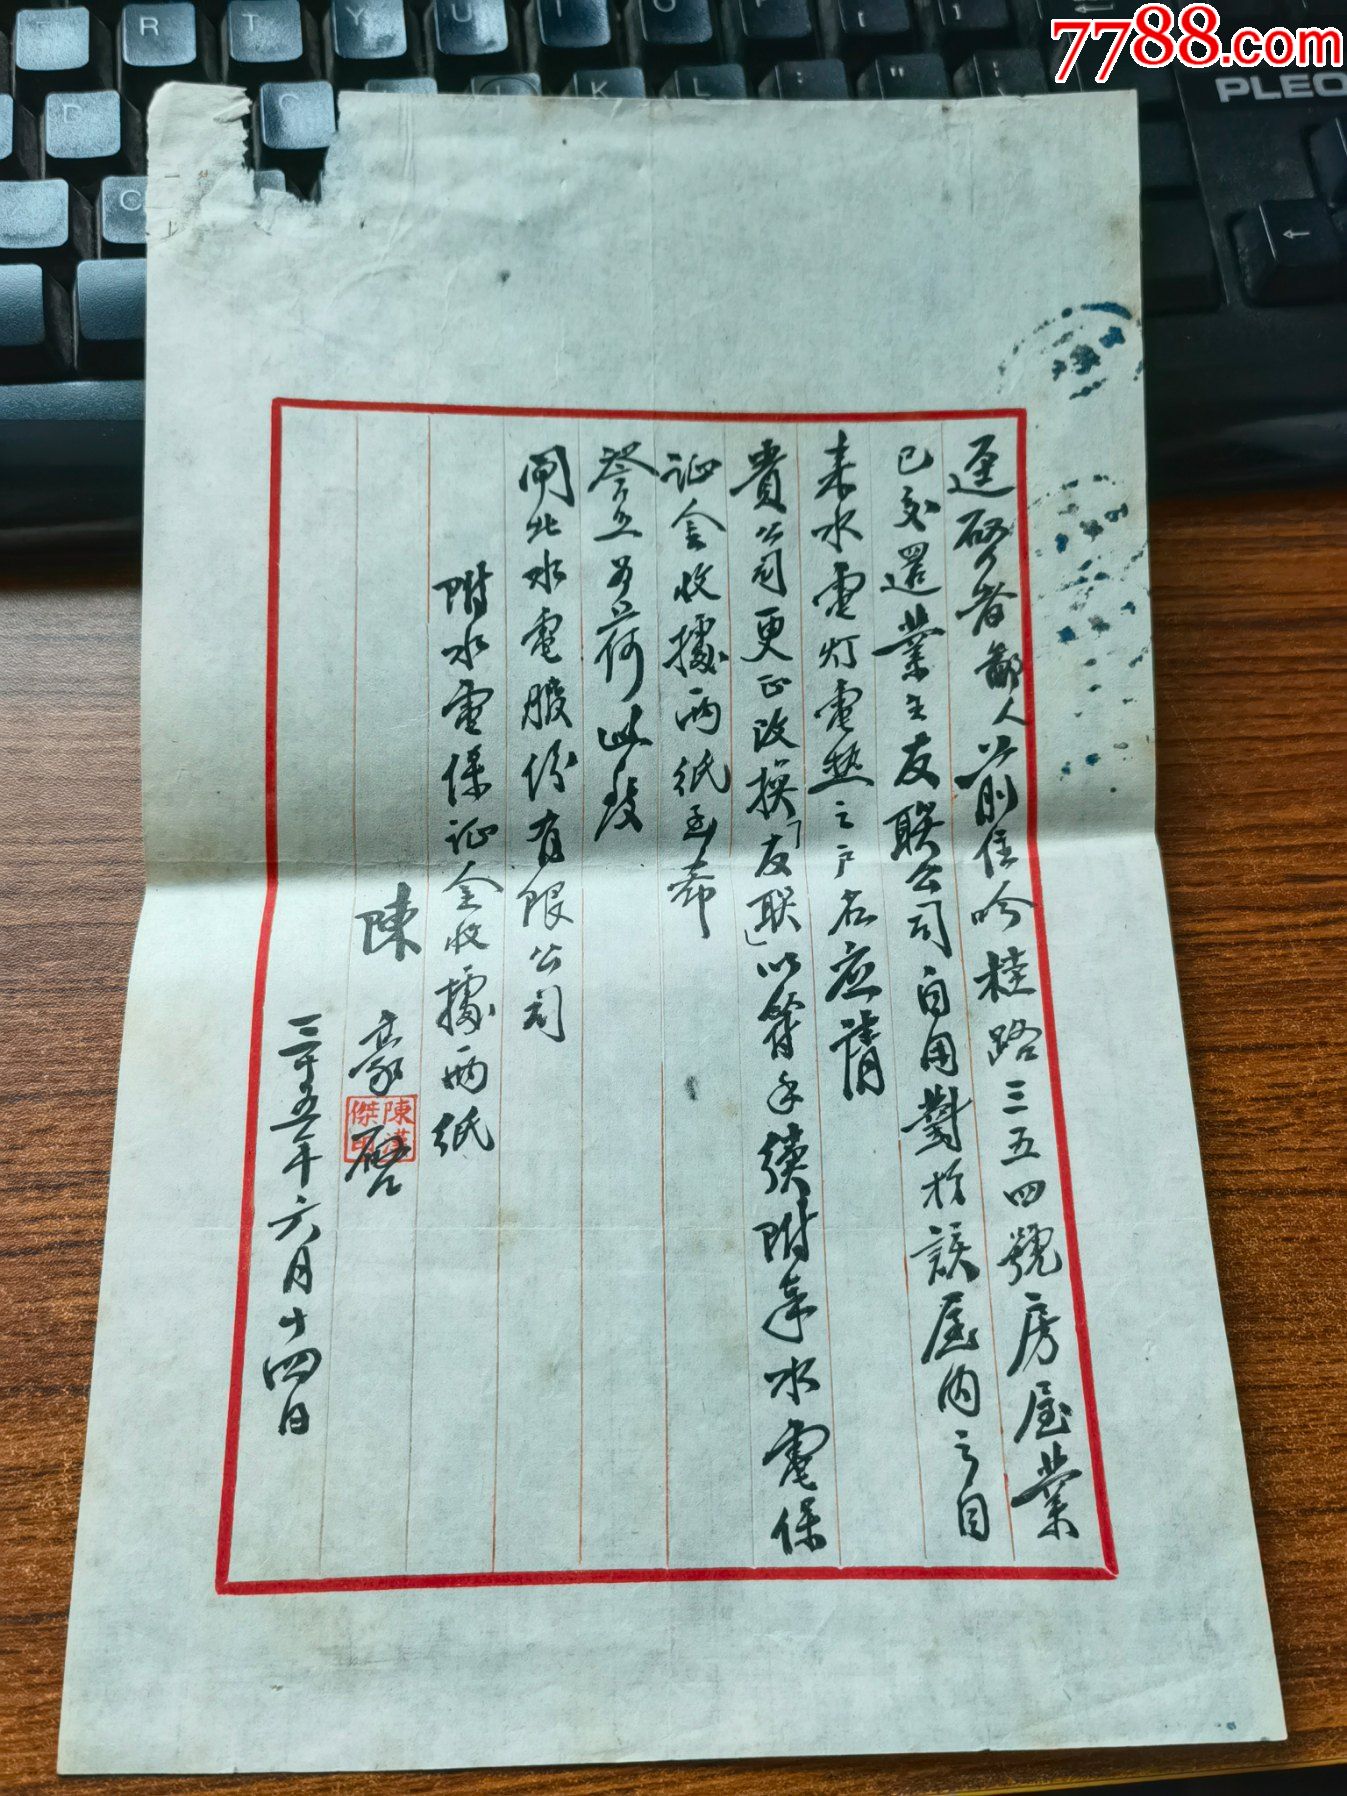 7788.com
PLEO
逕啓者鄙人以前住吟桂路三五四號房屋業
已交還業主友联公司自用對於該屋內之自
来水電灯電热之户名应請
貴公司更正改换「友联」以符手续附奉水電保
证金收據兩紙至希
詧正为荷此致
閘北水電股份有限公司
附水電保证金收據兩紙
陳豪啓
三十五年六月十四日